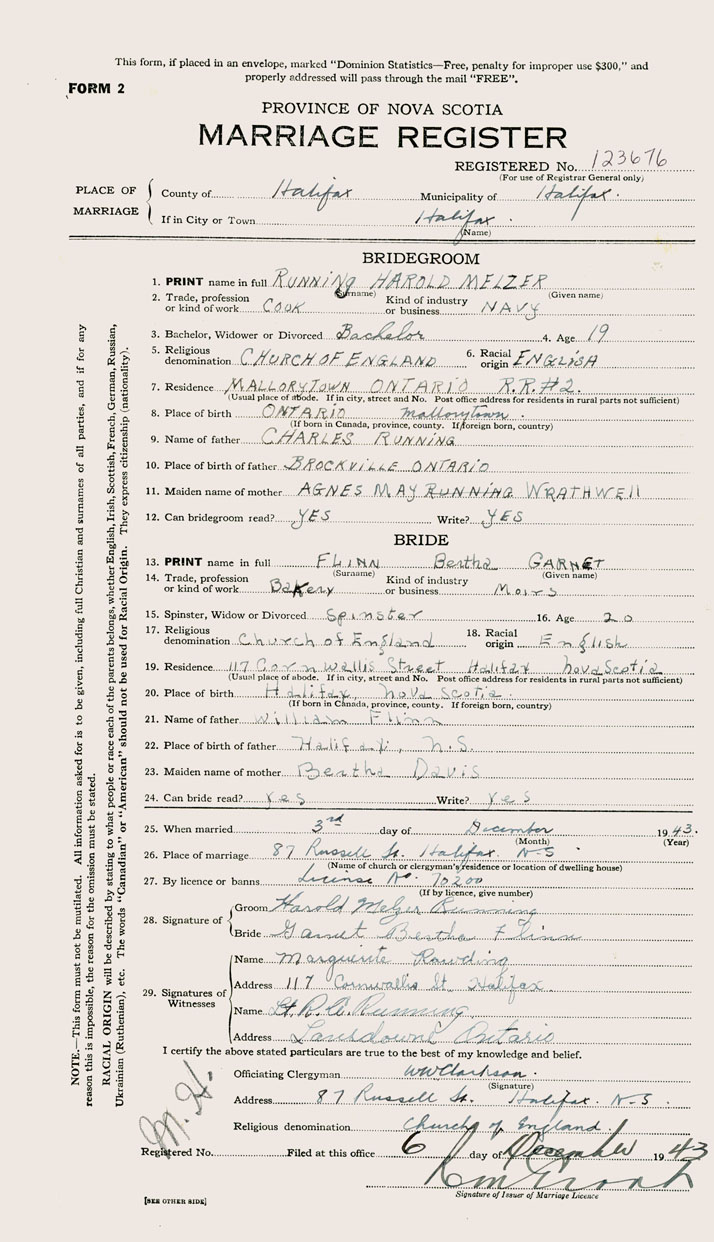 This form, if placed in an envelope, marked "Dominion Statistics—Free, penalty for improper use $300," and
properly addressed will pass through the mail "FREE".
FORM 2
PROVINCE OF NOVA SCOTIA
MARRIAGE REGISTER
REGISTERED No. 123676
(For use of Registrar General only)
PLACE OF MARRIAGE
County of Halifax Municipality of Halifax.
If in City or Town Halifax.
(Name)
BRIDEGROOM
1. PRINT name in full RUNNING HAROLD MELZER
(Surname) (Given name)
2. Trade, profession or kind of work COOK Kind of industry or business NAVY
3. Bachelor, Widower or Divorced Bachelor 4. Age 19
5. Religious denomination CHURCH OF ENGLAND 6. Racial origin ENGLISH
7. Residence MALLORYTOWN ONTARIO R.R.#2.
(Usual place of abode. If in city, street and No. Post office address for residents in rural parts not sufficient)
8. Place of birth ONTARIO Mallorytown.
(If born in Canada, province, county. If foreign born, country)
9. Name of father CHARLES RUNNING
10. Place of birth of father BROCKVILLE ONTARIO
11. Maiden name of mother AGNES MAY RUNNING WRATHWELL
12. Can bridegroom read? YES Write? YES
BRIDE
13. PRINT name in full FLINN Bertha GARNET
(Surname) (Given name)
14. Trade, profession or kind of work Bakery Kind of industry or business Moirs
15. Spinster, Widow or Divorced Spinster 16. Age 20
17. Religious denomination Church of England 18. Racial origin English
19. Residence 117 Cornwallis Street Halifax Nova Scotia
(Usual place of abode. If in city, street and No. Post office address for residents in rural parts not sufficient)
20. Place of birth Halifax, Nova Scotia.
(If born in Canada, province, county. If foreign born, country)
21. Name of father William Flinn
22. Place of birth of father Halifax, N.S.
23. Maiden name of mother Bertha Davis
24. Can bride read? Yes Write? Yes
25. When married 3rd day of December 1943.
(Month) (Year)
26. Place of marriage 87 Russell St. Halifax. N-S
(Name of church or clergyman's residence or location of dwelling house)
27. By licence or banns License No. 70200
(If by licence, give number)
28. Signature of
Groom Harold Melzer Running
Bride Garnet Bertha Flinn
29. Signatures of Witnesses
Name Marguerite Rawding
Address 117 Cornwallis St Halifax.
Name Running
Address Lansdowne Ontario
I certify the above stated particulars are true to the best of my knowledge and belief.
Officiating Clergyman WW Clarkson.
(Signature)
Address 87 Russell St. Halifax. N-S.
Religious denomination Church of England.
M.H.
Registered No. Filed at this office 6 day of December 1943
Signature of Issuer of Marriage Licence
[SEE OTHER SIDE]
NOTE.—This form must not be mutilated. All information asked for is to be given, including full Christian and surnames of all parties, and if for any
reason this is impossible, the reason for the omission must be stated.
RACIAL ORIGIN will be described by stating to what people or race each of the parents belongs, whether English, Irish, Scottish, French, German, Russian,
Ukrainian (Ruthenian), etc. The words "Canadian" or "American" should not be used for Racial Origin. They express citizenship (nationality).